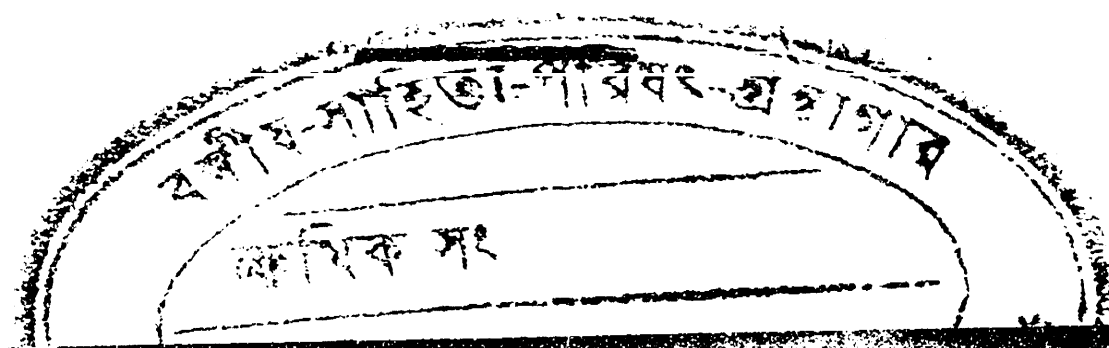 বঙ্গীয়-সাহিত্য-পরিষৎ-গ্রন্থাগার
ক্রমিক সং